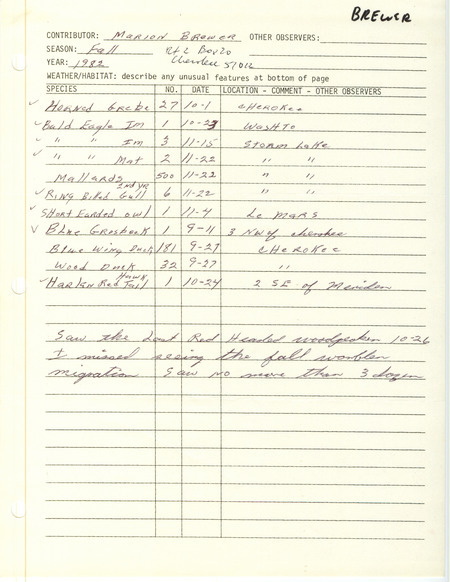 BREWER
CONTRIBUTOR: MARION BREWER OTHER OBSERVERS:
SEASON: Fall Rt 2 Box 20
YEAR: 1982 Cherokee 51012
WEATHER/HABITAT: describe any unusual features at bottom of page
SPECIES NO. DATE LOCATION - COMMENT - OTHER OBSERVERS
✓ HORNED Grebe 27 10-1 CHEROKee
✓ Bald Eagle Im 1 10-23 WASHTO
✓ " " Im 3 11-15 STORM LAKe
✓ " " Mat 2 11-22 " "
Mallards 500 11-22 " "
2nd yr
✓ Ring Billed Gull 6 11-22 " "
✓ SHORT Earded owl 1 11-4 Le MARS
✓ BLue Grosbeak 1 9-11 3 NW of cherokee
BLue Wing Duck 181 9-27 CHeroKee
Wood Duck 32 9-27 "
Hawk
✓ HARLAN Red Tail 1 10-24 2 SE of Meriden
Saw the Last Red Headed woodpecker 10-26
I missed seeing the fall warbler
migration Saw no more than 3 dozen